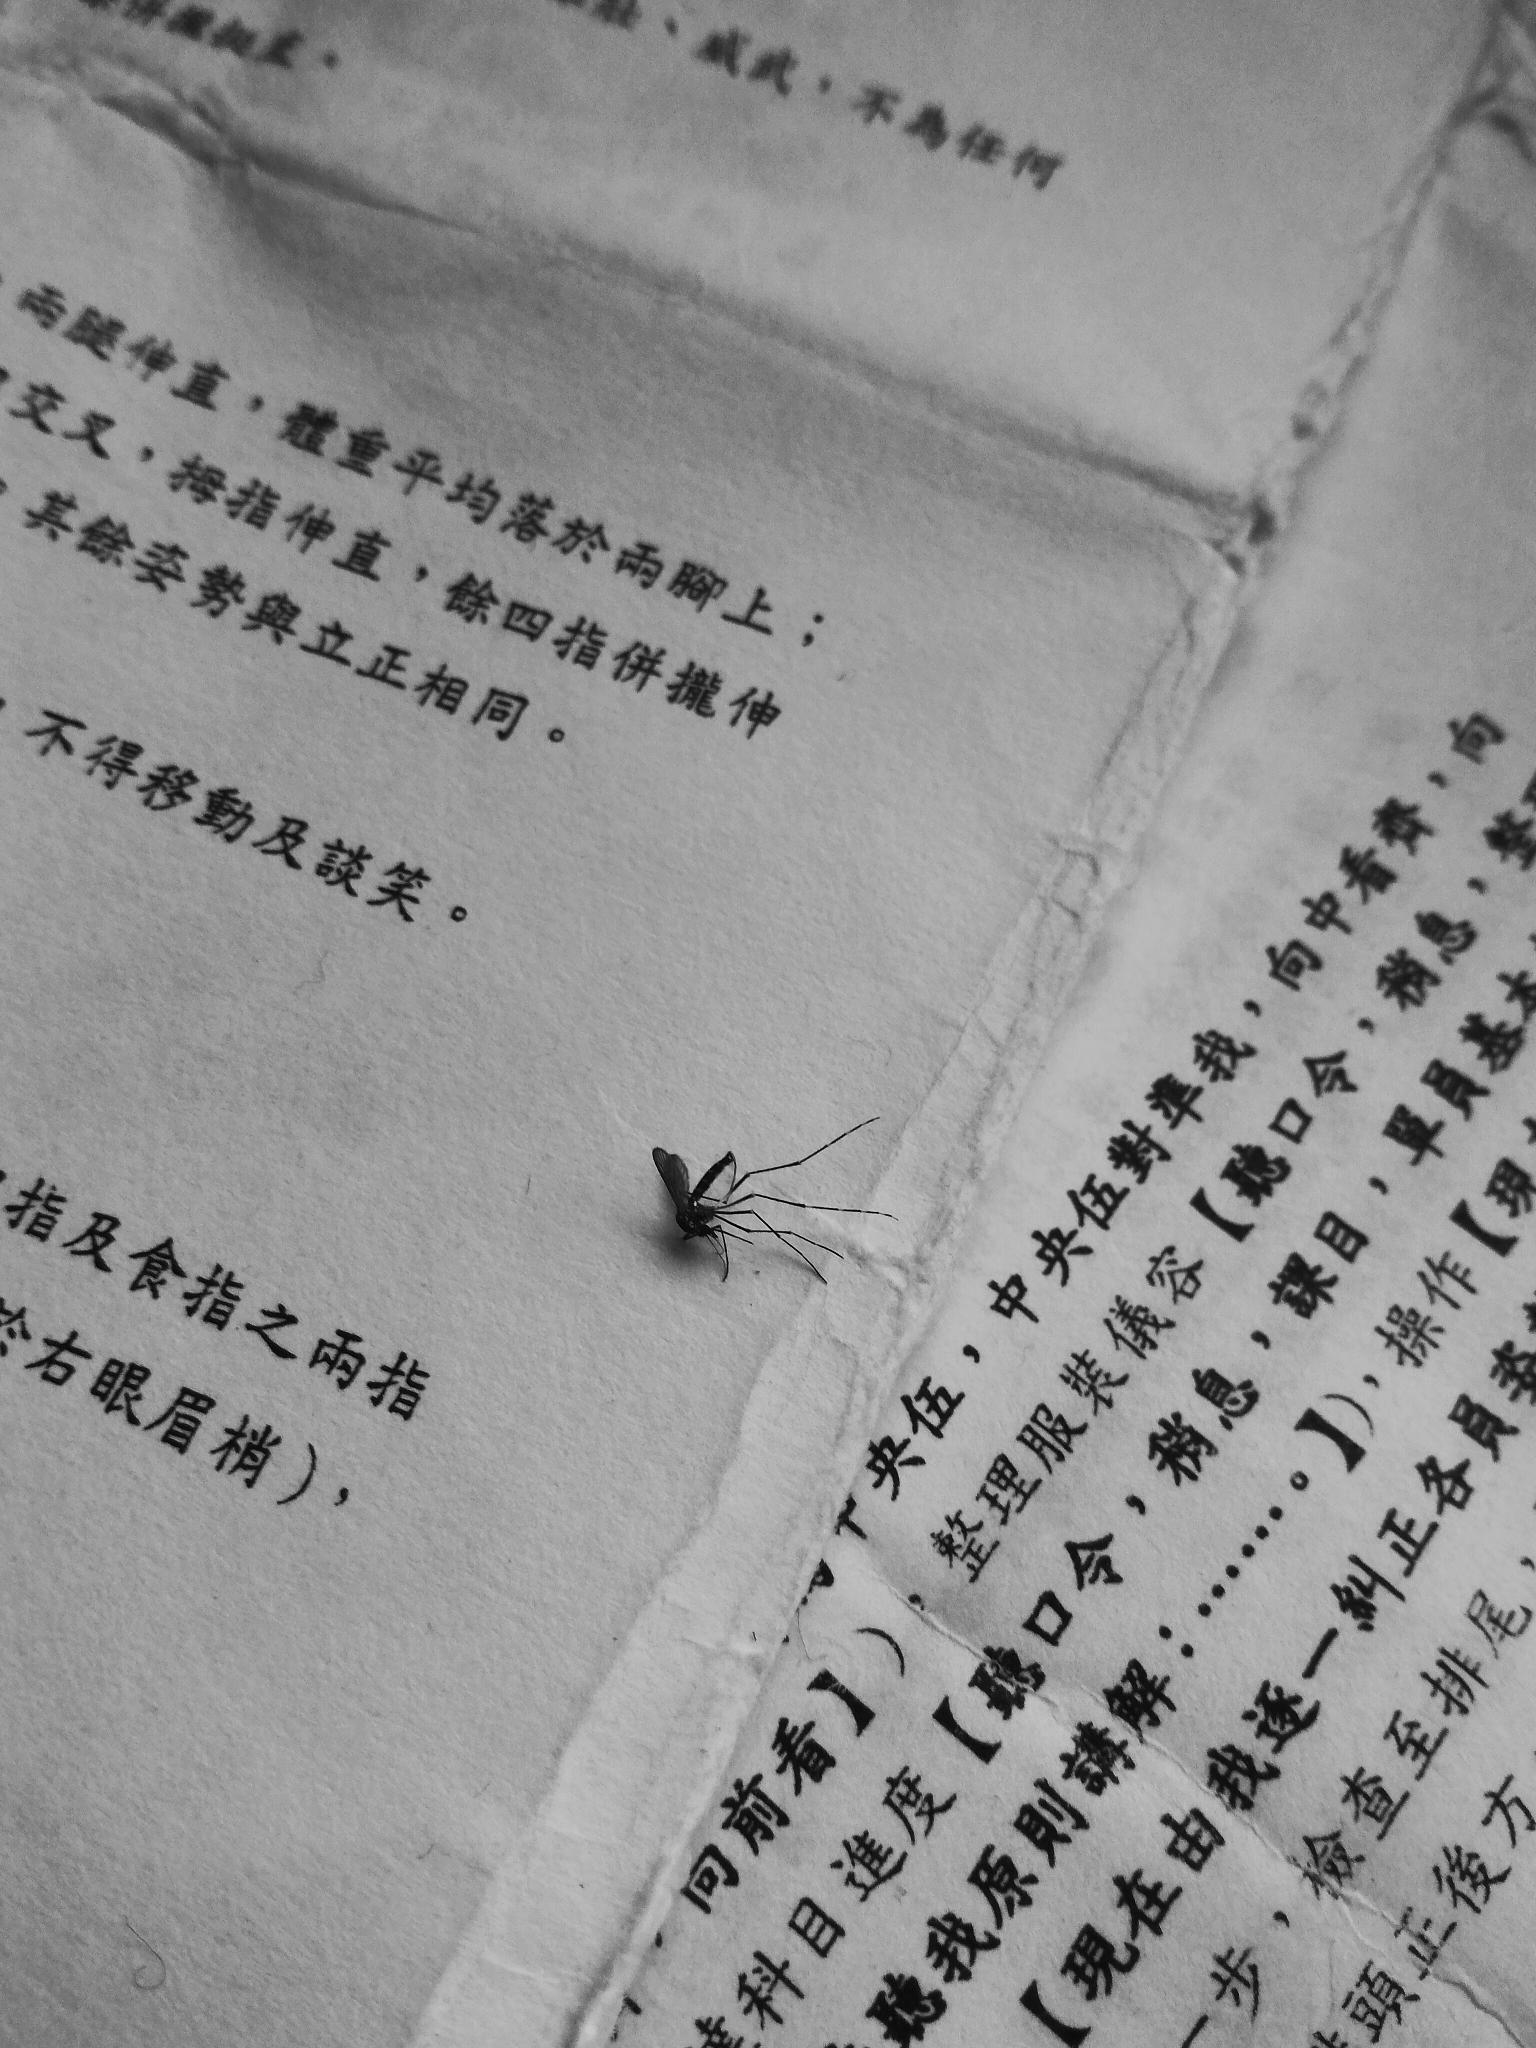 威武，不為任何
兩腿伸直，體重平均落於兩腳上；
交叉，拇指伸直，餘四指併攏伸
其餘姿勢與立正相同。
，不得移動及談笑。
指及食指之兩指
於右眼眉梢），
央伍，中央伍對準我，向中看齊，向
向前看】），整理服裝儀容【聽口令，稍息，整
科目進度【聽口令，稍息，課目，單員基本
聽我原則講解：⋯⋯。】），操作【現
【現在由我逐一糾正各員姿
一步，檢查至排尾，
頭正後方